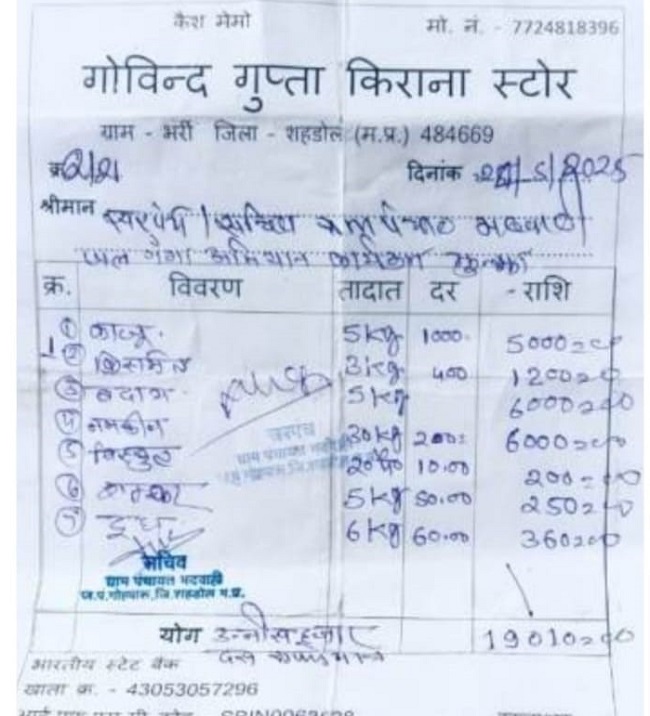 कैश मेमो मो. नं. - 7724818396
गोविन्द गुप्ता किराना स्टोर
ग्राम - भर्री जिला - शहडोल (म.प्र.) 484669
क्र. 2121 दिनांक 25/5/2025
श्रीमान सरपंच / सचिव ग्राम पंचायत भदवाही
जल गंगा अभियान कार्यक्रम
क्र. विवरण तादात दर राशि
① काजू 5kg 1000 5000=00
② किसमिस 3kg 400 1200=00
③ बदाम 5kg 6000=00
④ नमकीन 30kg 200= 6000=00
⑤ बिस्कुट 20 10.00 200=00
⑥ शक्कर 5kg 50.00 250=00
⑦ दूध 6kg 60.00 360=00
सरपंच
ग्राम पंचायत भदवाही
सचिव
ग्राम पंचायत भदवाही
ज.पं.गोहपारू, जि.शहडोल म.प्र.
योग उन्नीस हजार 19010=00
दस रुपये मात्र
भारतीय स्टेट बैंक
खाता क्र. - 43053057296